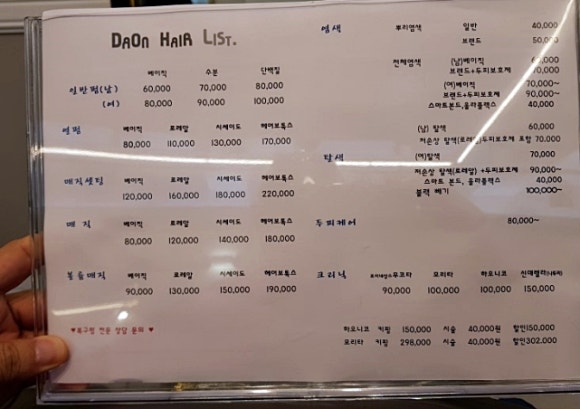 DAON HAIR LIST.
베이직 수분 단백질
일반펌(남) 60,000 70,000 80,000
(여) 80,000 90,000 100,000
열펌 베이직 로레알 시세이도 헤어보톡스
80,000 110,000 130,000 170,000
매직셋팅 베이직 로레알 시세이도 헤어보톡스
120,000 160,000 180,000 220,000
매직 베이직 로레알 시세이도 헤어보톡스
80,000 120,000 140,000 180,000
볼륨매직 베이직 로레알 시세이도 헤어보톡스
90,000 130,000 150,000 190,000
♥복구펌 전문 상담 문의 ♥
염색 뿌리염색 일반 40,000
브랜드 50,000
전체염색 (남)베이직
브랜드+두피보호제 70,000
(여)베이직 70,000
브랜드+두피보호제 90,000~
스마트본드,올라플렉스 40,000
(남) 탈색 60,000
저손상 탈색(로레알)두피보호제 포함 70,000
탈색 (여)탈색 70,000
저손상 탈색(로레알) +두피보호제 90,000~
스마트 본드, 올라플렉스 40,000
블랙 빼기 100,000~
두피케어 80,000~
크리닉 무코타 모리타 하오니코
90,000 100,000 100,000 150,000
하오니코 키핑 150,000 시술 40,000원 할인150,000
모리타 키핑 298,000 시술 40,000원 할인302,000